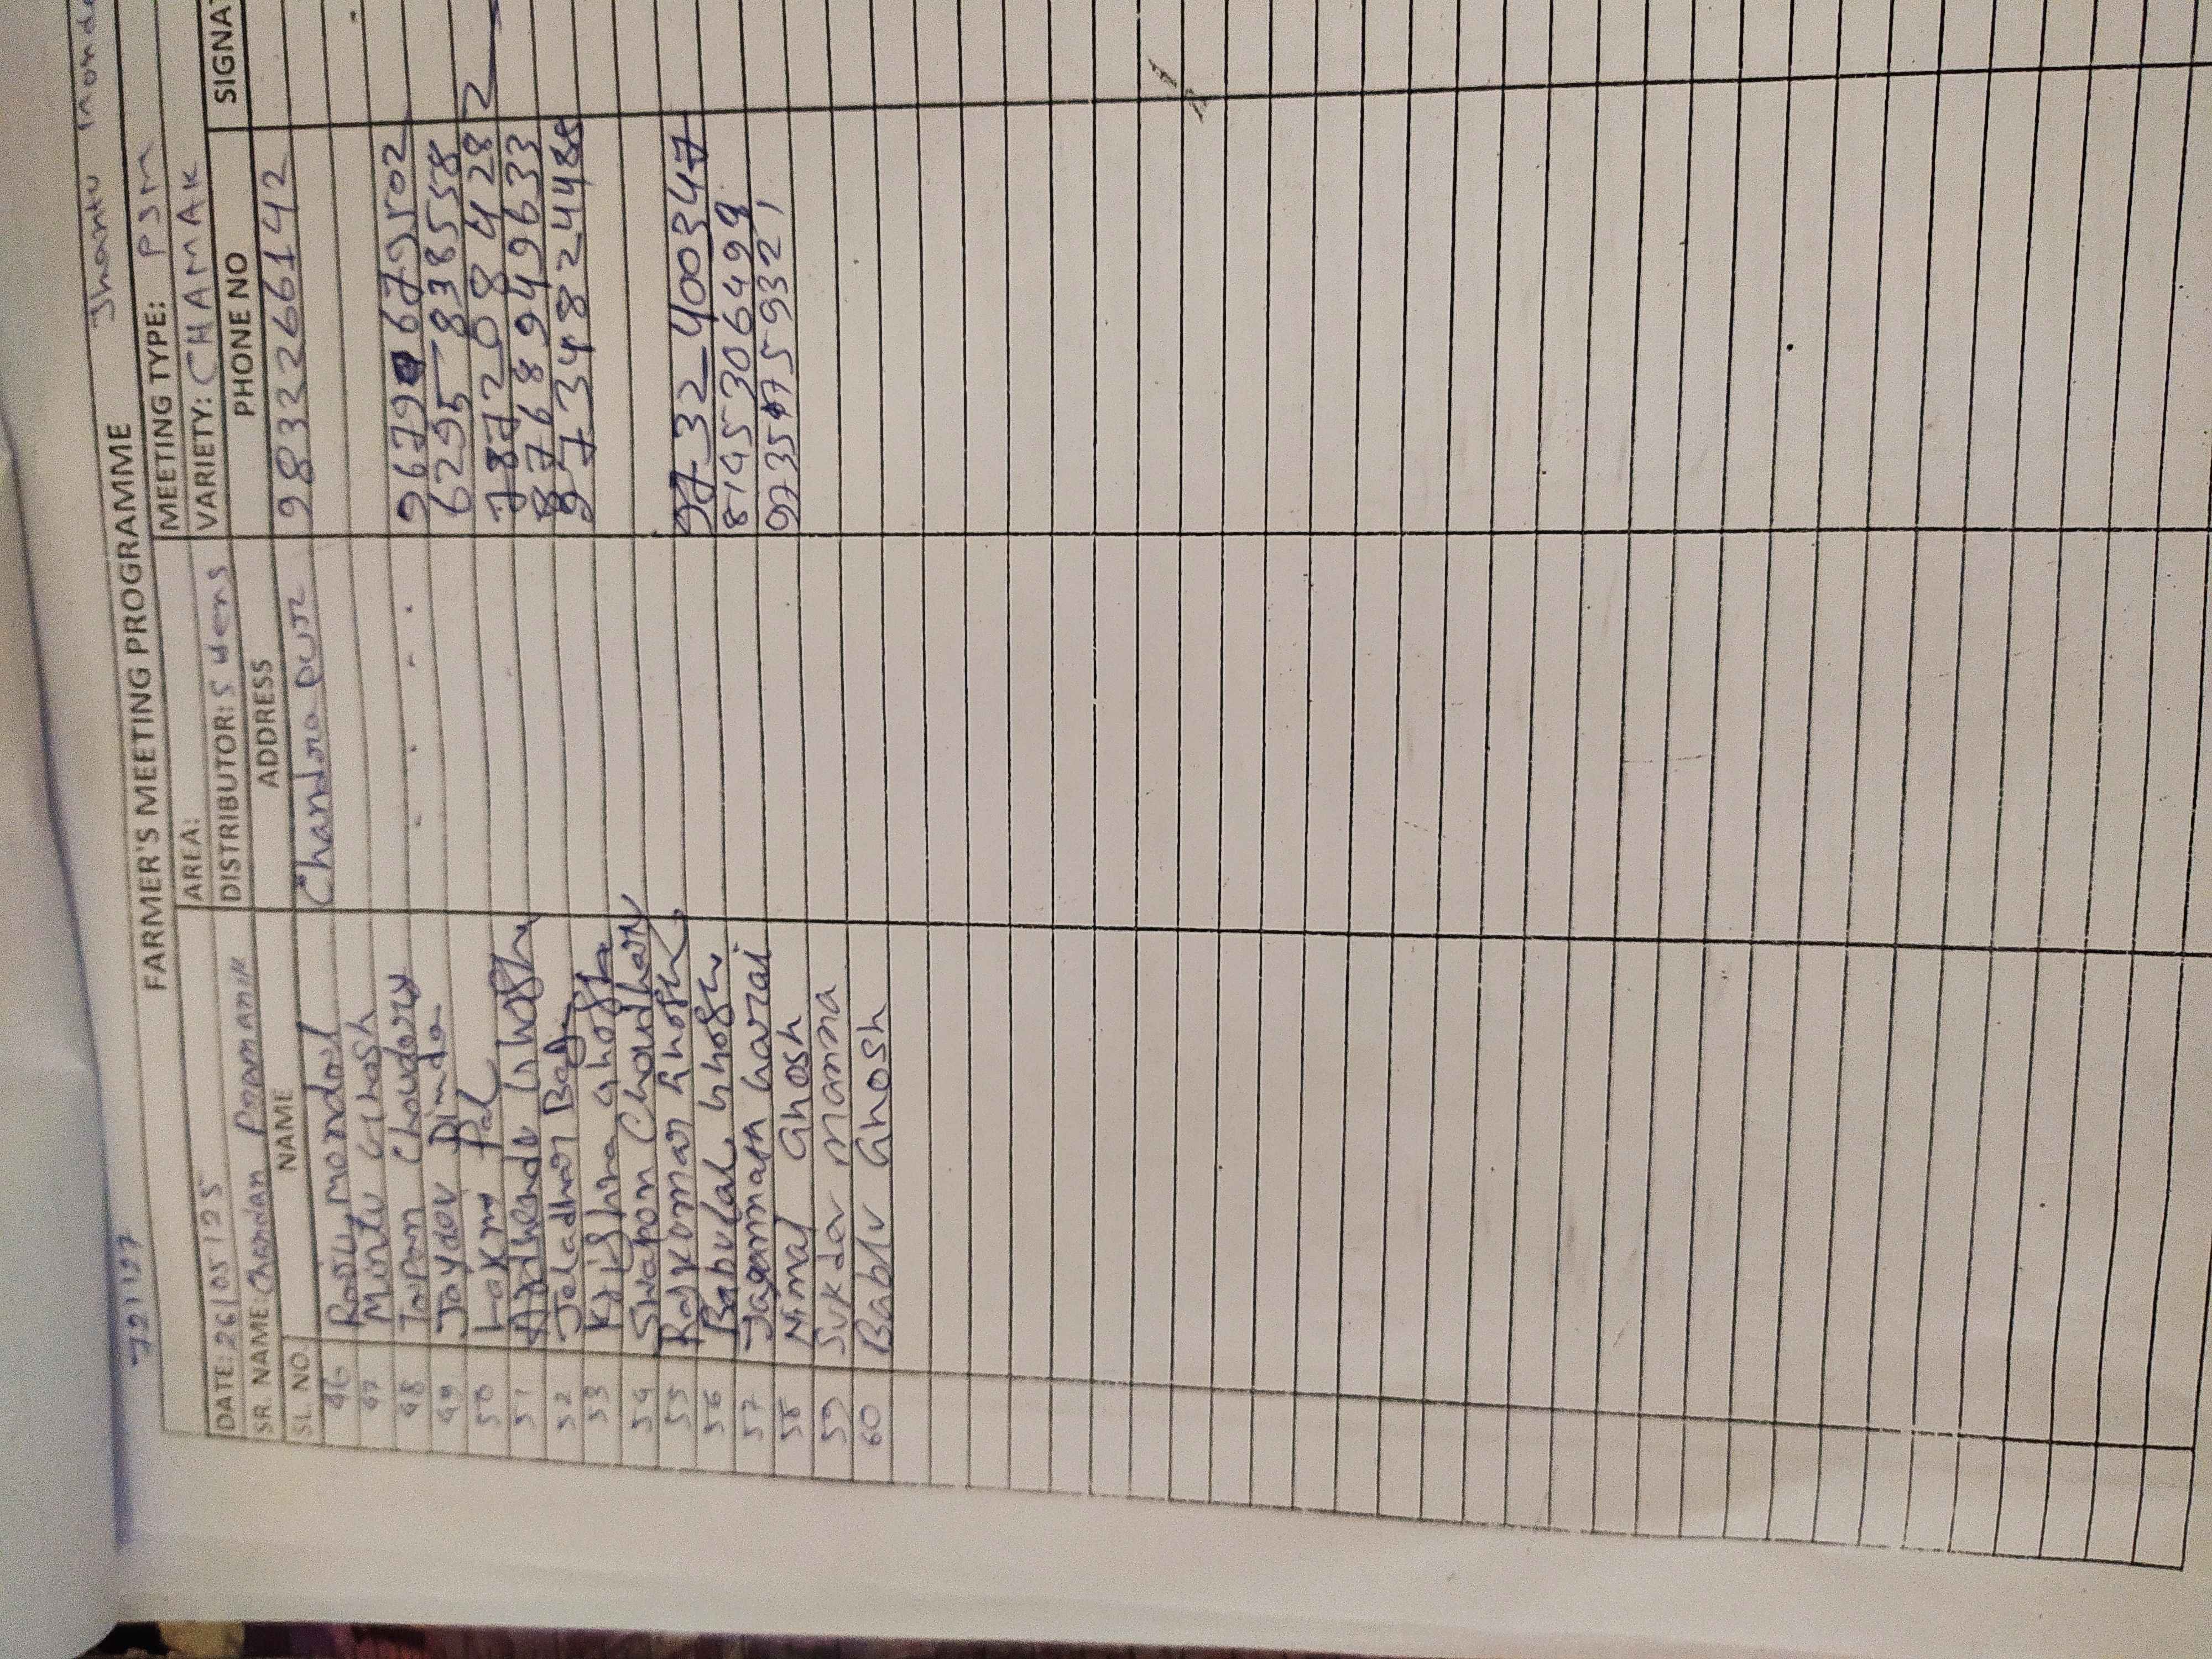 721197
Jhantu Mond
FARMER'S MEETING PROGRAMME
DATE: 26/05/25 AREA: MEETING TYPE: PSM
SR. NAME: Chandan Pramanik DISTRIBUTOR: VARIETY: CHAMAK
SL. NO. NAME ADDRESS PHONE NO SIGNAT
46 Raju Mondal Chandra pur 9833266142
47 Mintu Ghosh
48 Tapan Choudory 9679067502
49 Joydev Dinda 6295838558
50 Laxmi Pal 7872084282
51 Ardhendu Ghosh 8768949633
52 Jeladhar Bag 9734824488
53 Krishna Ghosh
54 Swapon Choudhary
55 Rajkomar Ghosh 97324003447
56 Babulal Ghosh 8145306499
57 Jagannath Garai 9735759332
58 Nimal Ghosh
59 Sukdev Manna
60 Bablu Ghosh